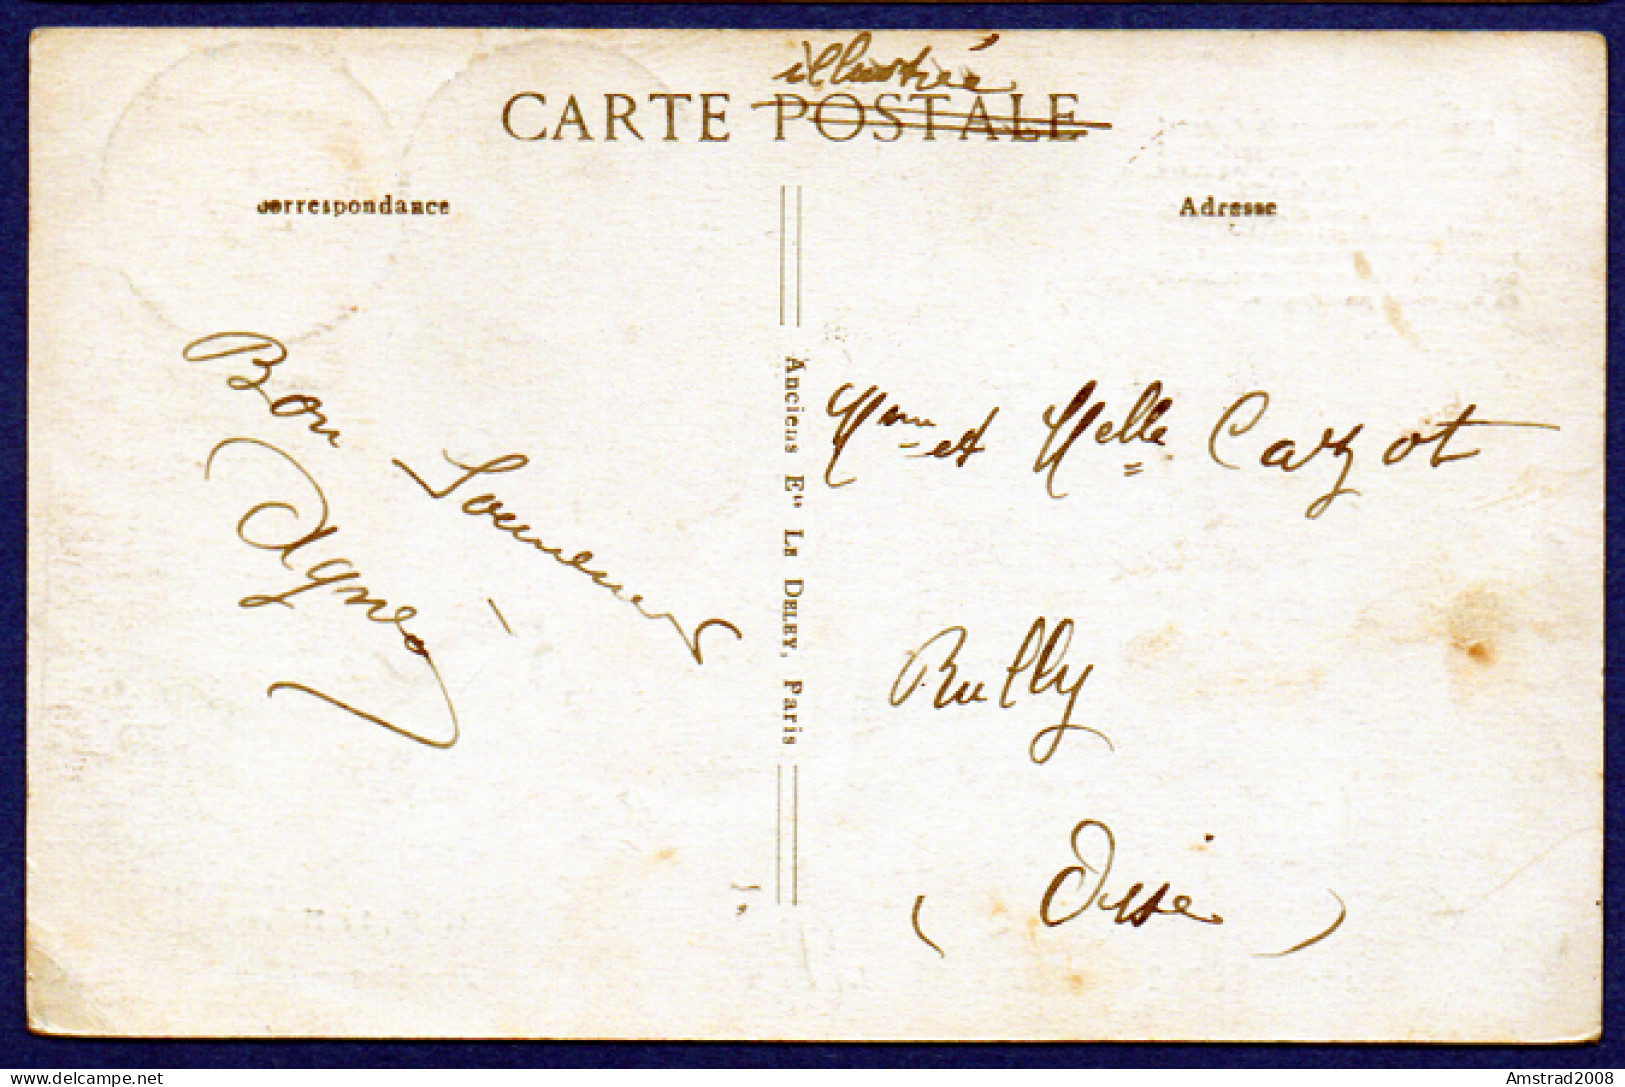 illustrée
CARTE POSTALE
Correspondance
Adresse
Bon Souvenir
Agnès
Anciens Etˢ Le Deley, Paris
Mme et Melle Cazot
Rully
(Oise)
delcampe.net
Amstrad2008